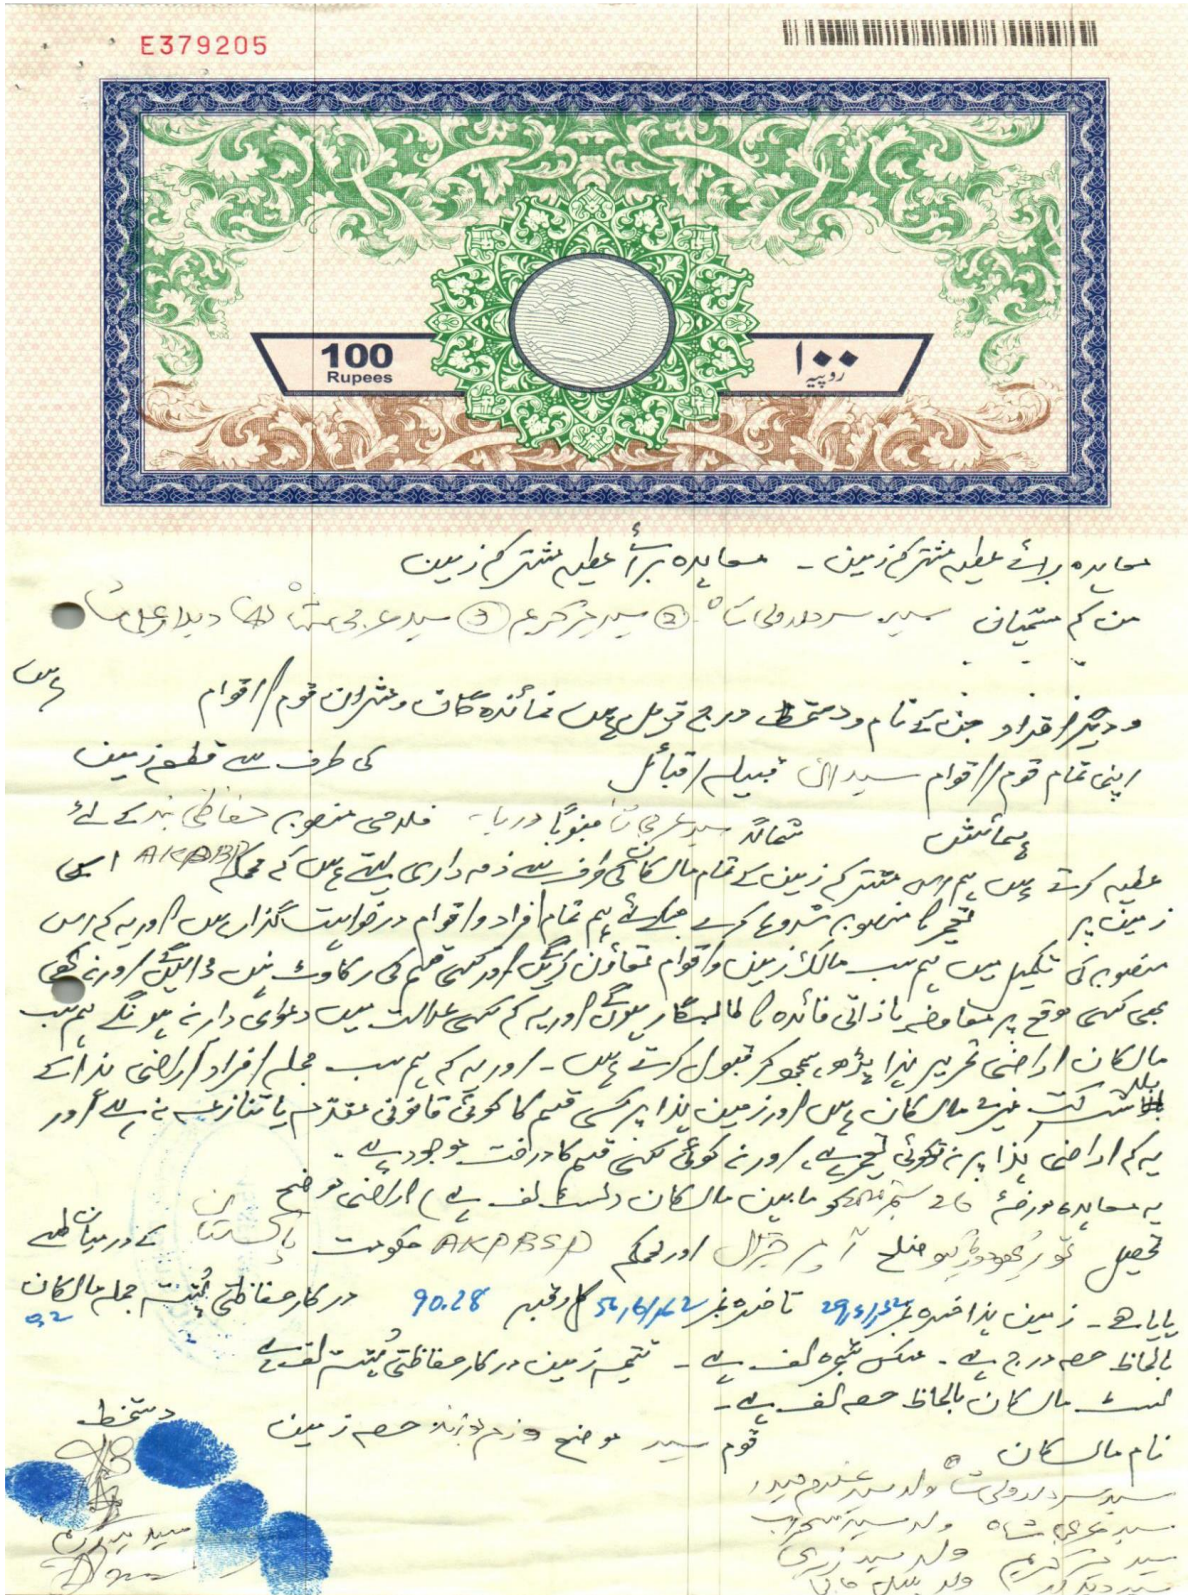 E379205
100
Rupees
۱۰۰
روپیہ
معاہدہ برائے عطیہ مشترکہ زمین - معاہدہ برائے عطیہ مشترکہ زمین
من کہ مسمیان سید سردار ولی شاہ ② سید میر کریم ③ سید عرجی شاہ
و دیگر افراد جن کے نام و دستخط درج ذیل ہیں نمائندہ گان و مشران قوم/اقوام
اپنی تمام قوم/اقوام سیدان قبیلہ/قبائل کی طرف سے قطعہ زمین
پیمائش شمالاً جنوباً دریا فلاحی منصوبہ حفاظتی بند کے لئے
عطیہ کرتے ہیں ہم اس مشترکہ زمین کے تمام مالکان کی طرف سے ذمہ داری لیتے ہیں کہ محکمہ AKPBSP اس
زمین پر تعمیر کا منصوبہ شروع کرے جسکے لئے ہم تمام افراد/اقوام درخواست گذار ہیں اور یہ کہ اس
منصوبہ کی تکمیل میں ہم سب مالک زمین و اقوام تعاون کرینگے اور کسی قسم کی رکاوٹ نہیں ڈالینگے اور نہ
بھی کسی موقع پر معاوضہ یا ذاتی فائدہ کا طالبگار ہونگے اور یہ کہ کسی عدالت میں دعوی دار نہ ہونگے ہم سب
مالکان اراضی تحریر ہذا پڑھ، سمجھ کر قبول کرتے ہیں - اور یہ کہ ہم سب جملہ افراد اراضی ہذا کے
بلا شرکت غیرے مالکان ہیں اور زمین ہذا پر کسی قسم کا کوئی قانونی مقدمہ یا تنازعہ نہ ہے اور
یہ کہ اراضی ہذا پر نہ کوئی تعمیر ہے، اور نہ کوئی کسی قسم کا درخت موجود ہے -
یہ معاہدہ مورخہ 26 ستمبر کو مابین مالکان (لسٹ لف ہے) اراضی موضع
تحصیل ضلع چترال اور محکمہ AKPBSP حکومت پاکستان کے درمیان طے
پایا ہے - زمین ہذا خسرہ نمبر تا خسرہ نمبر کل رقبہ 90.28 در کار حفاظتی پشتہ جملہ مالکان 92
بالحاظ حصہ درج ہے - عکس شجرہ لف ہے - تتمہ زمین در کار حفاظتی پشتہ لف ہے
لسٹ مالکان بالحاظ حصہ لف ہے -
نام مالکان قوم سید موضع حصہ زمین دستخط
سید سردار ولی شاہ ولد سید غلام حیدر
سید عرجی شاہ ولد سید
سید میر کریم ولد سید
ولد